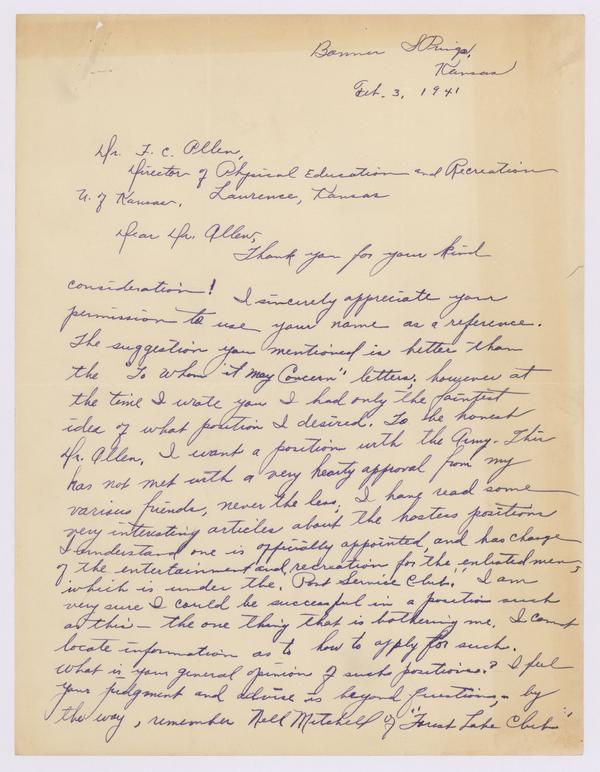 Bonner Springs,
Kansas
Feb. 3, 1941
Dr. F. C. Allen,
Director of Physical Education and Recreation
U. of Kansas, Lawrence, Kansas
Dear Dr. Allen,
Thank you for your kind
consideration! I sincerely appreciate your
permission to use your name as a reference.
The suggestion you mentioned is better than
the "To Whom it May Concern" letters, however at
the time I wrote you I had only the faintest
idea of what position I desired. To be honest
Dr. Allen, I want a position with the Army. This
has not met with a very hearty approval from my
various friends, never the less, I have read some
very interesting articles about the hostess positions
I understand one is officially appointed, and has charge
of the entertainment and recreation for the enlisted men,
which is under the "Post Service Club." I am
very sure I could be successful in a position such
as this — the one thing that is bothering me, I cannot
locate information as to how to apply for such.
What is your general opinion of such positions? I feel
your judgment and advise is beyond questions, - by
the way, remember Nell Mitchell of "Forest Lake Club"